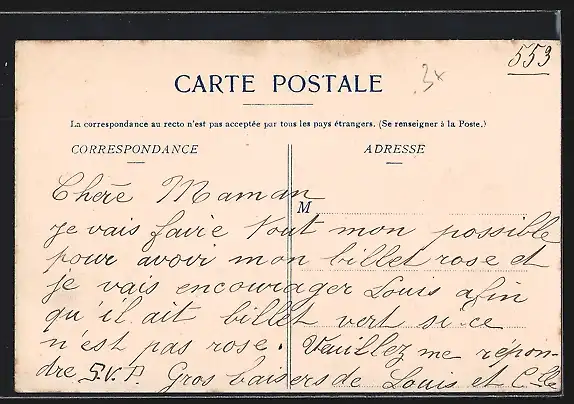 553
3x
CARTE POSTALE
La correspondance au recto n'est pas acceptée par tous les pays étrangers. (Se renseigner à la Poste.)
CORRESPONDANCE
ADRESSE
M
Chère Maman
je vais faire tout mon possible
pour avoir mon billet rose et
je vais encourager Louis afin
qu'il ait billet vert si ce
n'est pas rose. Veuillez me répon-
dre S.V.P. Gros baisers de Louis et C.lle